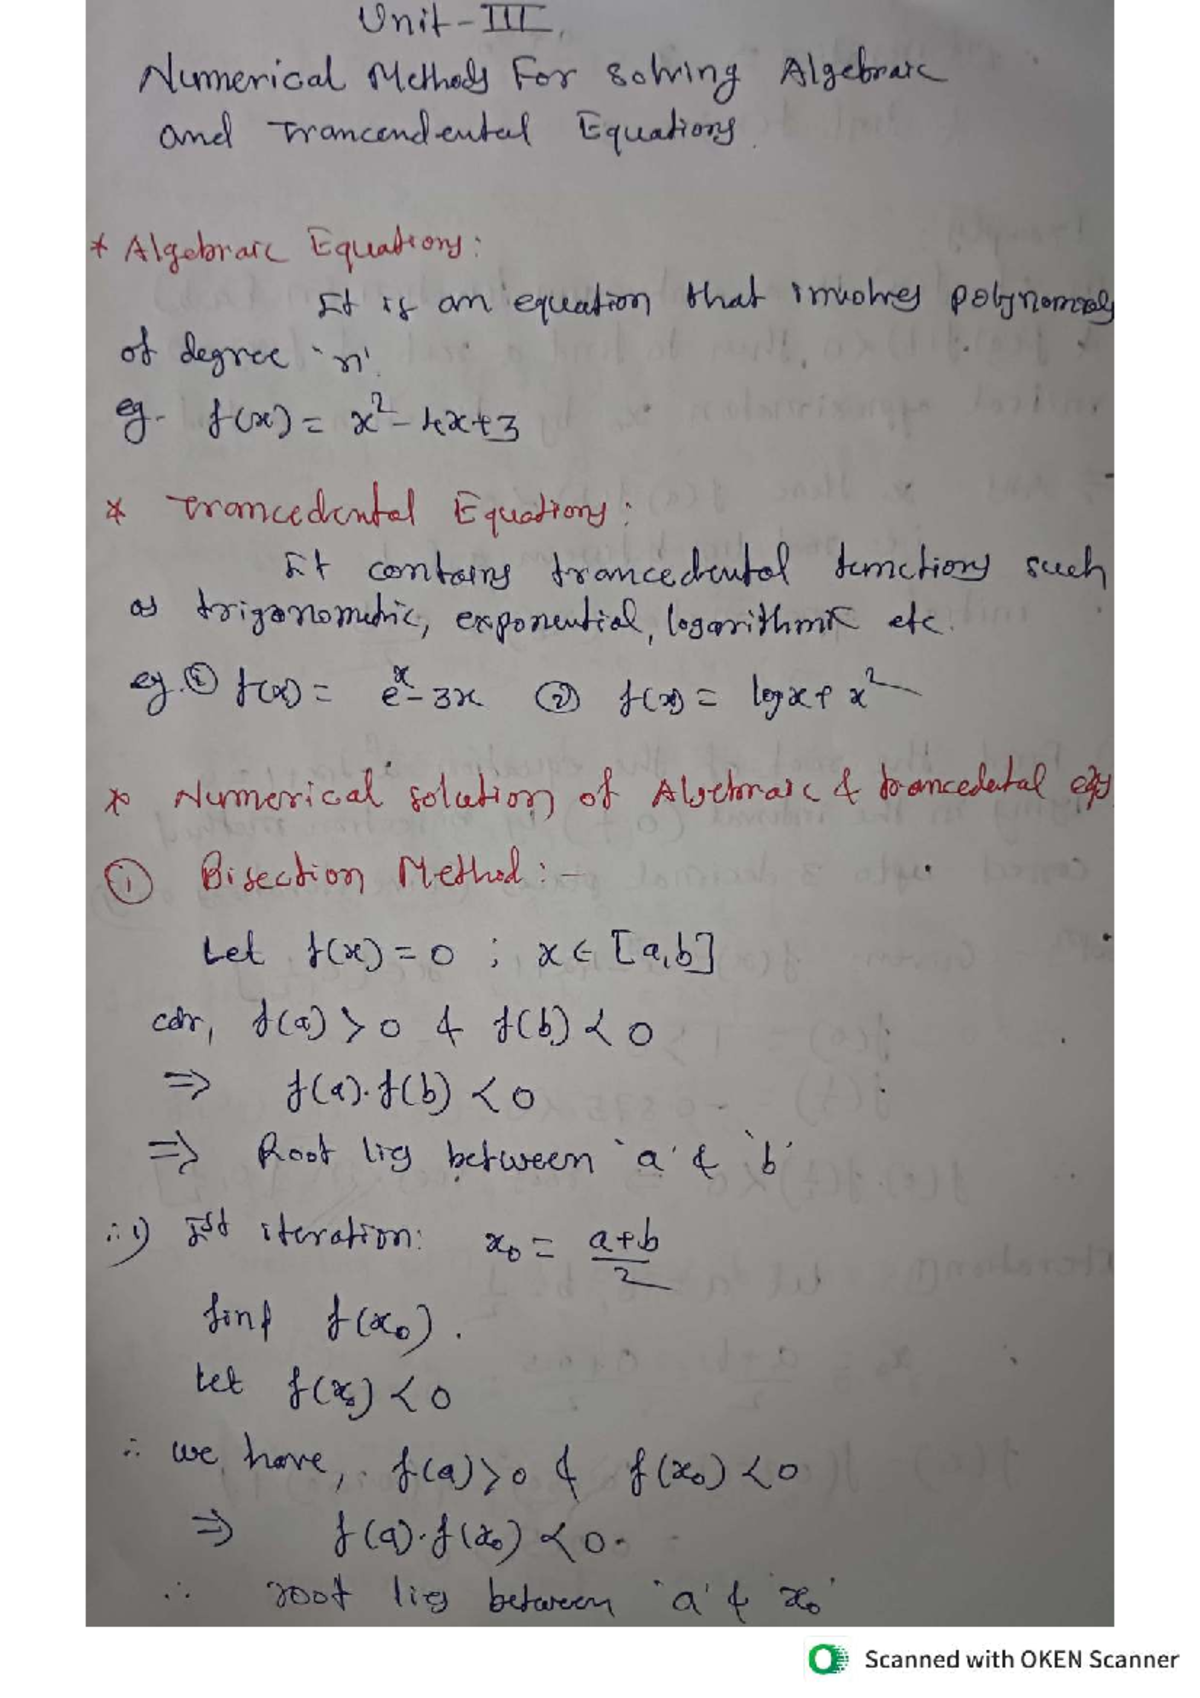 Unit-III
Numerical Methods For Solving Algebraic
and Trancendental Equations.
* Algebraic Equations:
It is an equation that involves polynomials
of degree 'n'.
eg. f(x) = x² - 4x+3
* Trancedental Equations:
It contains trancedental functions such
as trigonometric, exponential, logarithmic etc.
eg. ① f(x) = eˣ - 3x ② f(x) = logx + x²
* Numerical solution of Algebraic & trancedental eqs
① Bisection Method :-
Let f(x) = 0 ; x ∈ [a,b]
f(a) > 0 & f(b) < 0
⇒ f(a).f(b) < 0
⇒ Root lies between 'a' & 'b'
∴ 1) Ist iteration: x₀ = a+b/2
find f(x₀).
Let f(x₀) < 0
∴ we have, f(a) > 0 & f(x₀) < 0
⇒ f(a).f(x₀) < 0.
∴ root lies between 'a' & 'x₀'
Scanned with OKEN Scanner